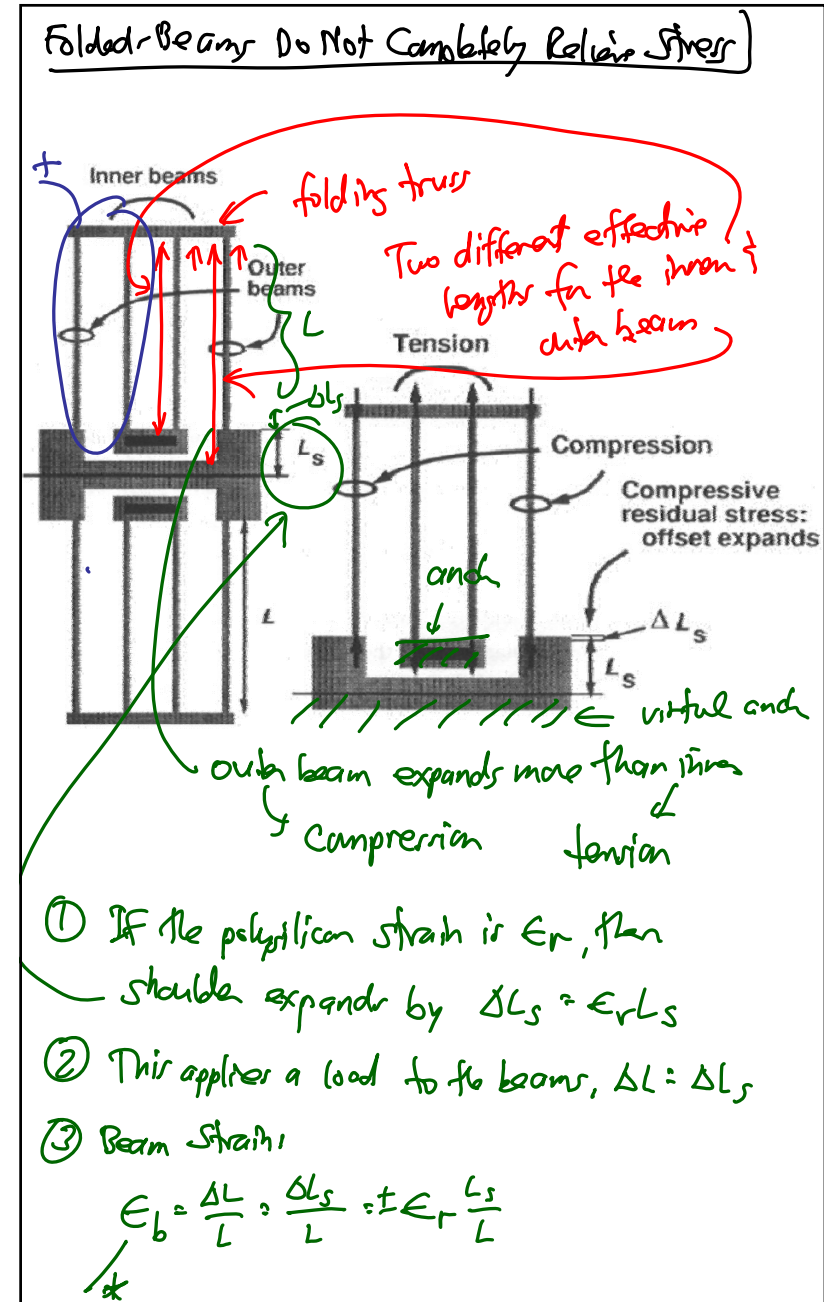 Folded-Beams Do Not Completely Relieve Stress
+
Inner beams
folding truss
Two different effective
lengths for the inner &
outer beam
Outer
beams
L
ΔLs
Ls
Tension
Compression
Compressive
residual stress:
offset expands
anch
L
Δ Ls
Ls
← virtual anch
outer beam expands more than inner
↳ Compression
tension
① If the polysilicon strain is εr, then
shoulder expands by ΔLs = εrLs
② This applies a load to the beams, ΔL = ΔLs
③ Beam Strain:
εb = ΔL/L = ΔLs/L = ± εr Ls/L
*